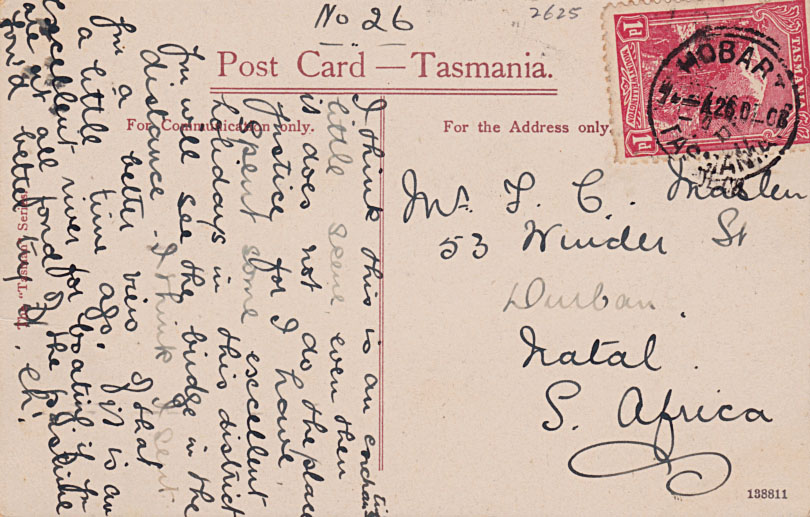 No 26
2625
Post Card — Tasmania.
For Communication only.
For the Address only.
1d
1d
TASMANIA
MOUNT WELLINGTON
HOBART
26.
TASMANIA
I think this is an enchanting
little scene even then
is does not do the place
justice for I have
spent some excellent
holidays in this district
you will see the bridge in the
distance. I think I sent
you a better view of that
a little time ago, it is an
excellent river for boating if you
are at all fond of the pastime
you'd better try it. eh!
Mr. F. C. Maslen
53 Winder St
Durban.
Natal.
S. Africa
The "Tasman" Series
138811